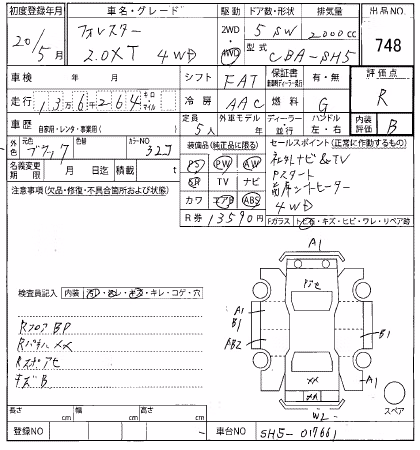 初度登録年月 車名・グレード 駆動 ドア数・形状 排気量 出品NO.
20/5月 フォレスター 2.0XT 4WD 2WD 4WD 5 SW 2000cc 748
型式 CBA-SH5
車検 年 月 シフト FAT 保証書 有・無 評価点
走行 13万6千264 キロ マイル 冷房 AAC 燃料 G R
車歴 自家用・レンタ・事業用( ) 定員 5人 外車モデル 年 ディーラー 並行 ハンドル 左・右 内装評価 B
外色 元色 色替 カラーNO 32J
装備品(純正品に限る) セールスポイント(正常に作動するもの)
名義変更期限 月 日迄 積載 t
PS PW AW
SR TV ナビ
カワ エアB ABS
社外ナビ&TV
Pスタート
前席シートヒーター
4WD
注意事項(欠品・修復・不具合箇所および状態)
R券 13590円 Fガラス トビ石・キズ・ヒビ・ワレ・リペア跡
検査員記入 内装 ヨゴレ・コゲ・穴
RフロアBP
Rパネルメメ
キズB
A1
A1
B1
AB2
B1
A1
メメ
A
W2
スペア
長さ cm 幅 cm 高さ cm
登録NO - 車台NO SH5-017661